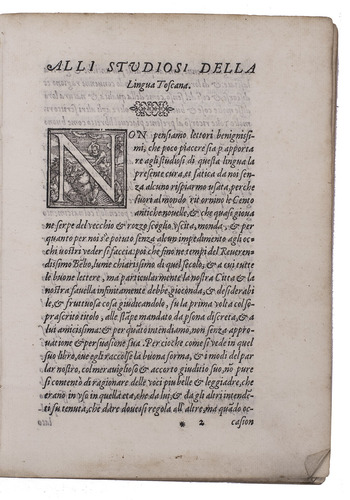 ALLI STVDIOSI DELLA
Lingua Toscana.
NON pensiamo lettori benignissi-
mi, che poco piacere sia p apporta
re agli studiosi di questa lingua la
presente cura, et fatica da noi sen-
za alcuno risparmo usata, perche
fuori al mondo ritornino le Cento
antiche nouelle, & che quasi gioua
ne serpe del vecchio & rozzo scoglio vscita, monda, & per
quanto per noi s'e potuto senza alcun impedimento agli oc-
chi uostri veder si faccia: poi che fino ne tempi del Reueren-
dissimo Bēbo, lume chiarissimo di quel secolo, & a cui tutte
le buone lettere, ma particularmente la nostra Citta & la
nostra fauella infinitamente debbe, gioconda, & desiderabi
le, & fruttuosa cosa giudicandolo, fu la prima volta col so-
prascrito titolo, alle stāpe mandato da psona discreta, & a
lui amicissima: & per quāto intendiamo, non senza appro-
uatione & persuasione sua. Percioche come si vede in quel
suo libro, oue egli raccolse la buona forma, & i modi del par
lar nostro, col merauiglioso & accorto giuditio suo, nō pure
si contentò di ragionare delle voci piu belle & leggiadre, che
erano in vso in quella eta, che da lui, & da gli altri intenden-
ti su tenuta, che dare douessi regola all'altre, ma quādo oc-
* 2 casion